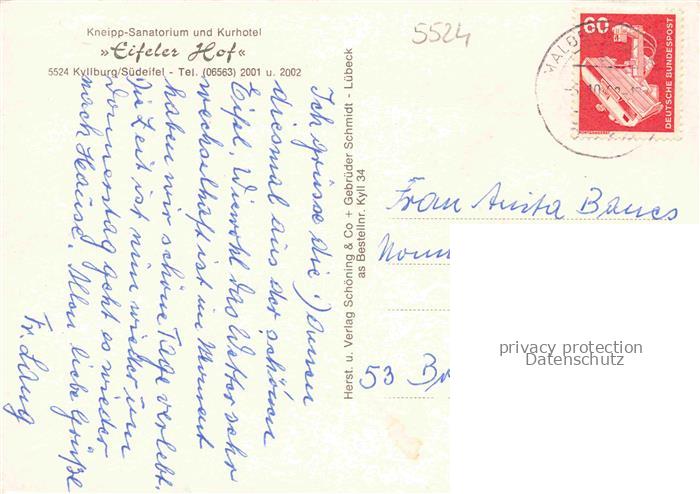 Kneipp-Sanatorium und Kurhotel
»Eifeler Hof«
5524 Kyllburg/Südeifel - Tel. (06563) 2001 u. 2002
5524
60
DEUTSCHE BUNDESPOST
Ich grüsse die
diesmal aus der schönen
Eifel. Wiewohl das Wetter sehr
wechselhaft ist im Moment
haben wir schöne Tage verlebt.
Die Zeit ist nun wieder um
Donnerstag geht es wieder
nach Hause. Allen liebe Grüße
Fr. Lang
Herst. u. Verlag Schöning & Co + Gebrüder Schmidt - Lübeck
as Bestellnr. Kyll 34
Frau Anita
53
privacy protection
Datenschutz